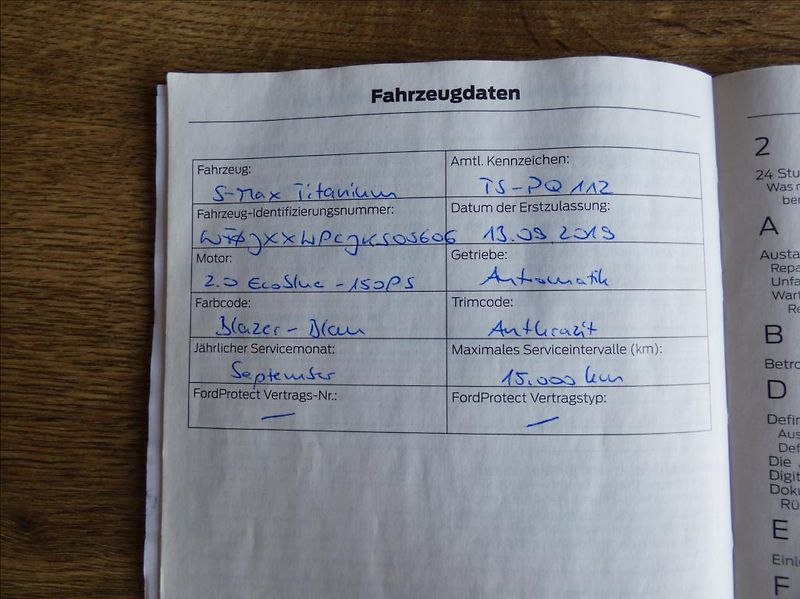 Fahrzeugdaten
Fahrzeug:
S-Max Titanium
Amtl. Kennzeichen:
TS-PQ 112
Fahrzeug-Identifizierungsnummer:
Datum der Erstzulassung:
13.09.2019
Motor:
2.0 EcoBlue - 150PS
Getriebe:
Automatik
Farbcode:
Blazer-Blau
Trimcode:
Anthrazit
Jährlicher Servicemonat:
September
Maximales Serviceintervalle (km):
15.000 km
FordProtect Vertrags-Nr.:
—
FordProtect Vertragstyp:
—
2
24 Stu
Was
A
Austa
Repa
Unfa
Wart
Re
B
Betro
D
Defin
Aus
Def
Die
Digit
Doku
Rü
E
Einl
F